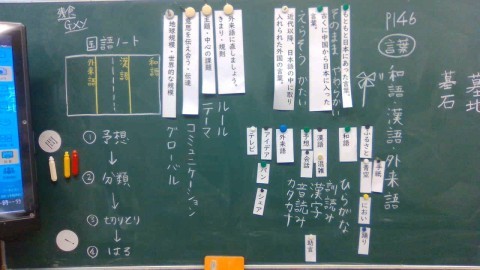 P146
言葉
和語・漢語・外来語
墓地
墓石
もともと日本にあった言葉。
古くに中国から日本に入った言葉。
えらそう かたい
近代以降、日本語の中に取り入れられた外国の言葉。
ふるさと
青空
におい
和語
漢語
混雑
予想
会話
外来語
アイデア
パン
シェア
テレビ
ひらがな
訓読み
漢字
音読み
カタカナ
外来語に直しましょう。
きまり・規則
ルール
主題・中心の課題
テーマ
意思を伝え合う・伝達
コミュニケーション
地球規模・世界的な規模
グローバル
国語ノート
和語
漢語
外来語
① 予想
② 分類
③ 切りとり
④ はる